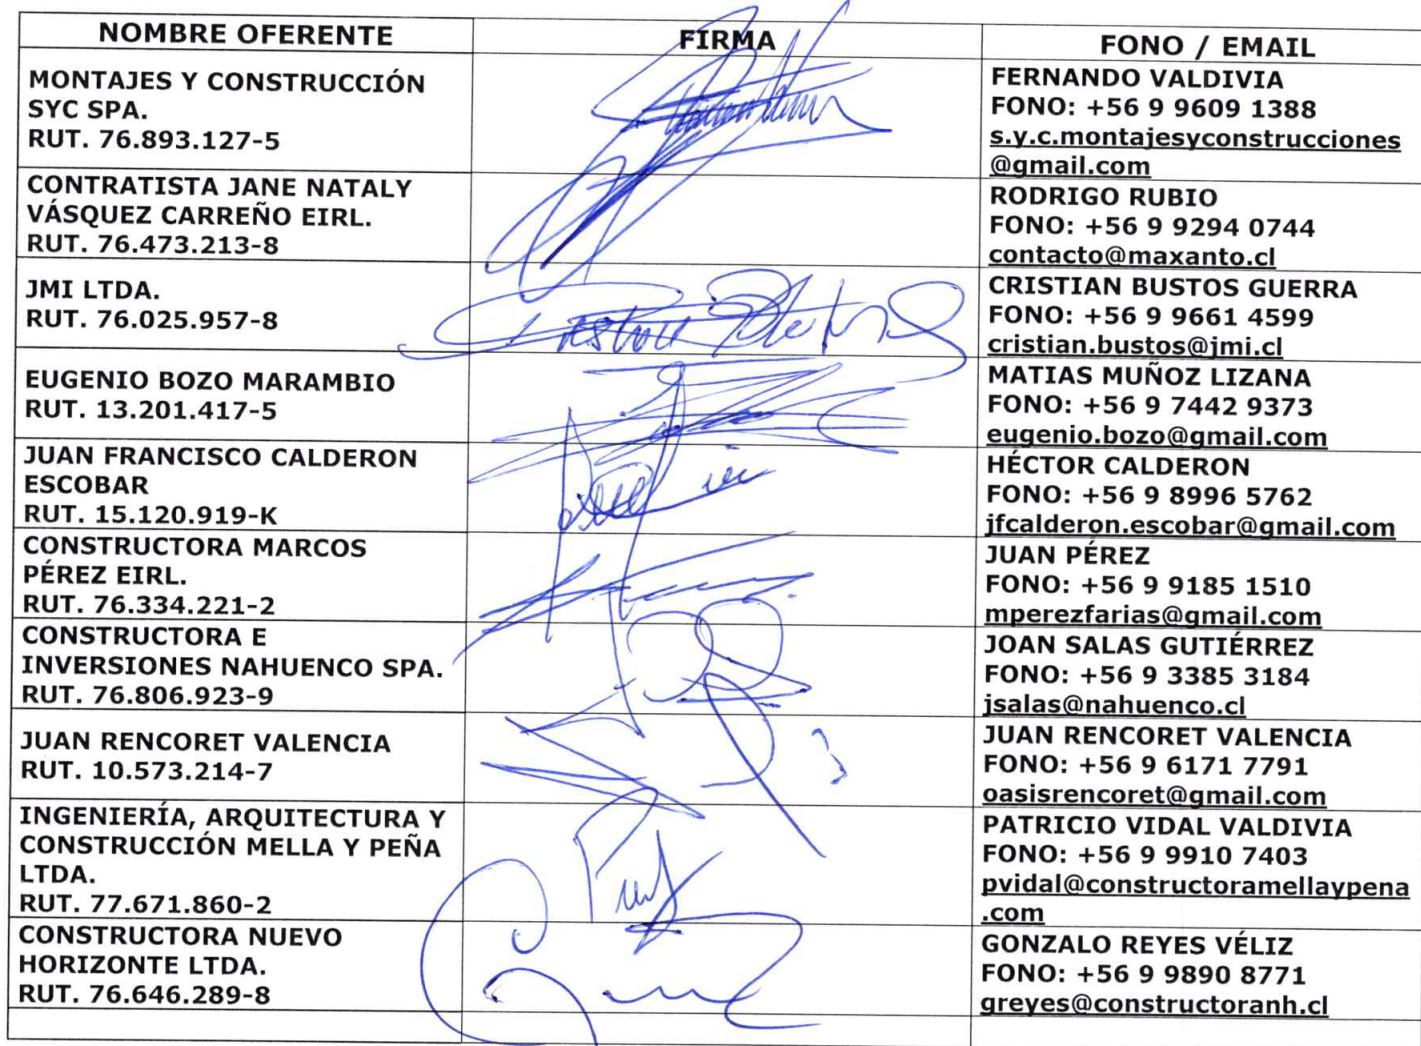 NOMBRE OFERENTE
FIRMA
FONO / EMAIL
MONTAJES Y CONSTRUCCIÓN
SYC SPA.
RUT. 76.893.127-5
FERNANDO VALDIVIA
FONO: +56 9 9609 1388
s.y.c.montajesyconstrucciones
@gmail.com
CONTRATISTA JANE NATALY
VÁSQUEZ CARREÑO EIRL.
RUT. 76.473.213-8
RODRIGO RUBIO
FONO: +56 9 9294 0744
contacto@maxanto.cl
JMI LTDA.
RUT. 76.025.957-8
CRISTIAN BUSTOS GUERRA
FONO: +56 9 9661 4599
cristian.bustos@jmi.cl
EUGENIO BOZO MARAMBIO
RUT. 13.201.417-5
MATIAS MUÑOZ LIZANA
FONO: +56 9 7442 9373
eugenio.bozo@gmail.com
JUAN FRANCISCO CALDERON
ESCOBAR
RUT. 15.120.919-K
HÉCTOR CALDERON
FONO: +56 9 8996 5762
jfcalderon.escobar@gmail.com
CONSTRUCTORA MARCOS
PÉREZ EIRL.
RUT. 76.334.221-2
JUAN PÉREZ
FONO: +56 9 9185 1510
mperezfarias@gmail.com
CONSTRUCTORA E
INVERSIONES NAHUENCO SPA.
RUT. 76.806.923-9
JOAN SALAS GUTIÉRREZ
FONO: +56 9 3385 3184
jsalas@nahuenco.cl
JUAN RENCORET VALENCIA
RUT. 10.573.214-7
JUAN RENCORET VALENCIA
FONO: +56 9 6171 7791
oasisrencoret@gmail.com
INGENIERÍA, ARQUITECTURA Y
CONSTRUCCIÓN MELLA Y PEÑA
LTDA.
RUT. 77.671.860-2
PATRICIO VIDAL VALDIVIA
FONO: +56 9 9910 7403
pvidal@constructoramellaypena
.com
CONSTRUCTORA NUEVO
HORIZONTE LTDA.
RUT. 76.646.289-8
GONZALO REYES VÉLIZ
FONO: +56 9 9890 8771
greyes@constructoranh.cl